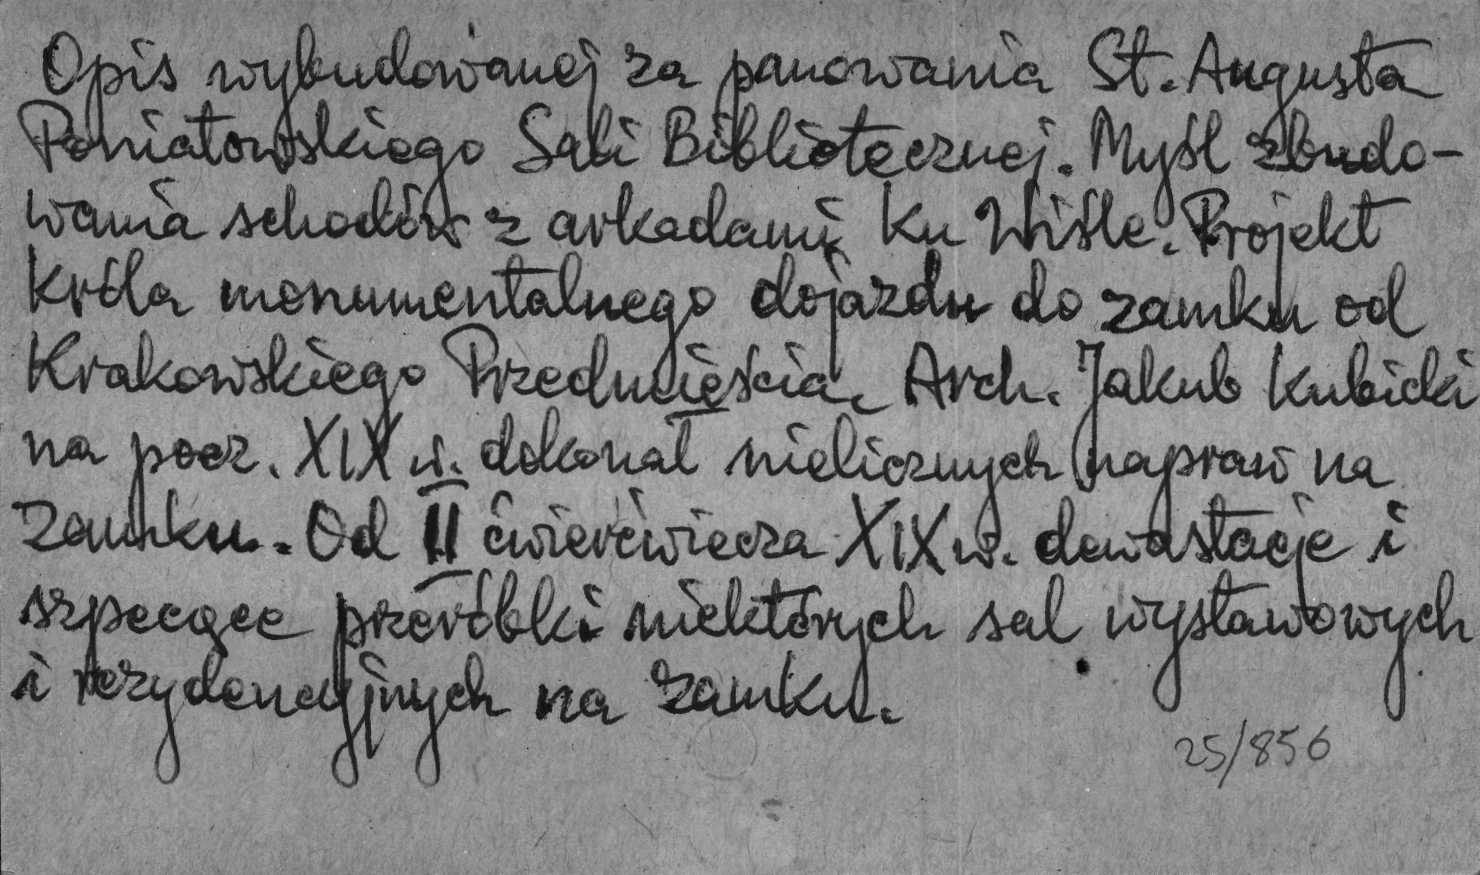 Opis wybudowanej za panowania St. Augusta
Poniatowskiego Sali Bibliotecznej. Myśl zbudo-
wania schodów z arkadami ku Wiśle. Projekt
króla monumentalnego dojazdu do zamku od
Krakowskiego Przedmieścia. Arch. Jakub Kubicki
na pocz. XIX w. dokonał nielicznych napraw na
zamku. Od II ćwierćwiecza XIX w. dewastacje i
szpecące przeróbki niektórych sal wystawowych
i rezydencyjnych na zamku.
25/856